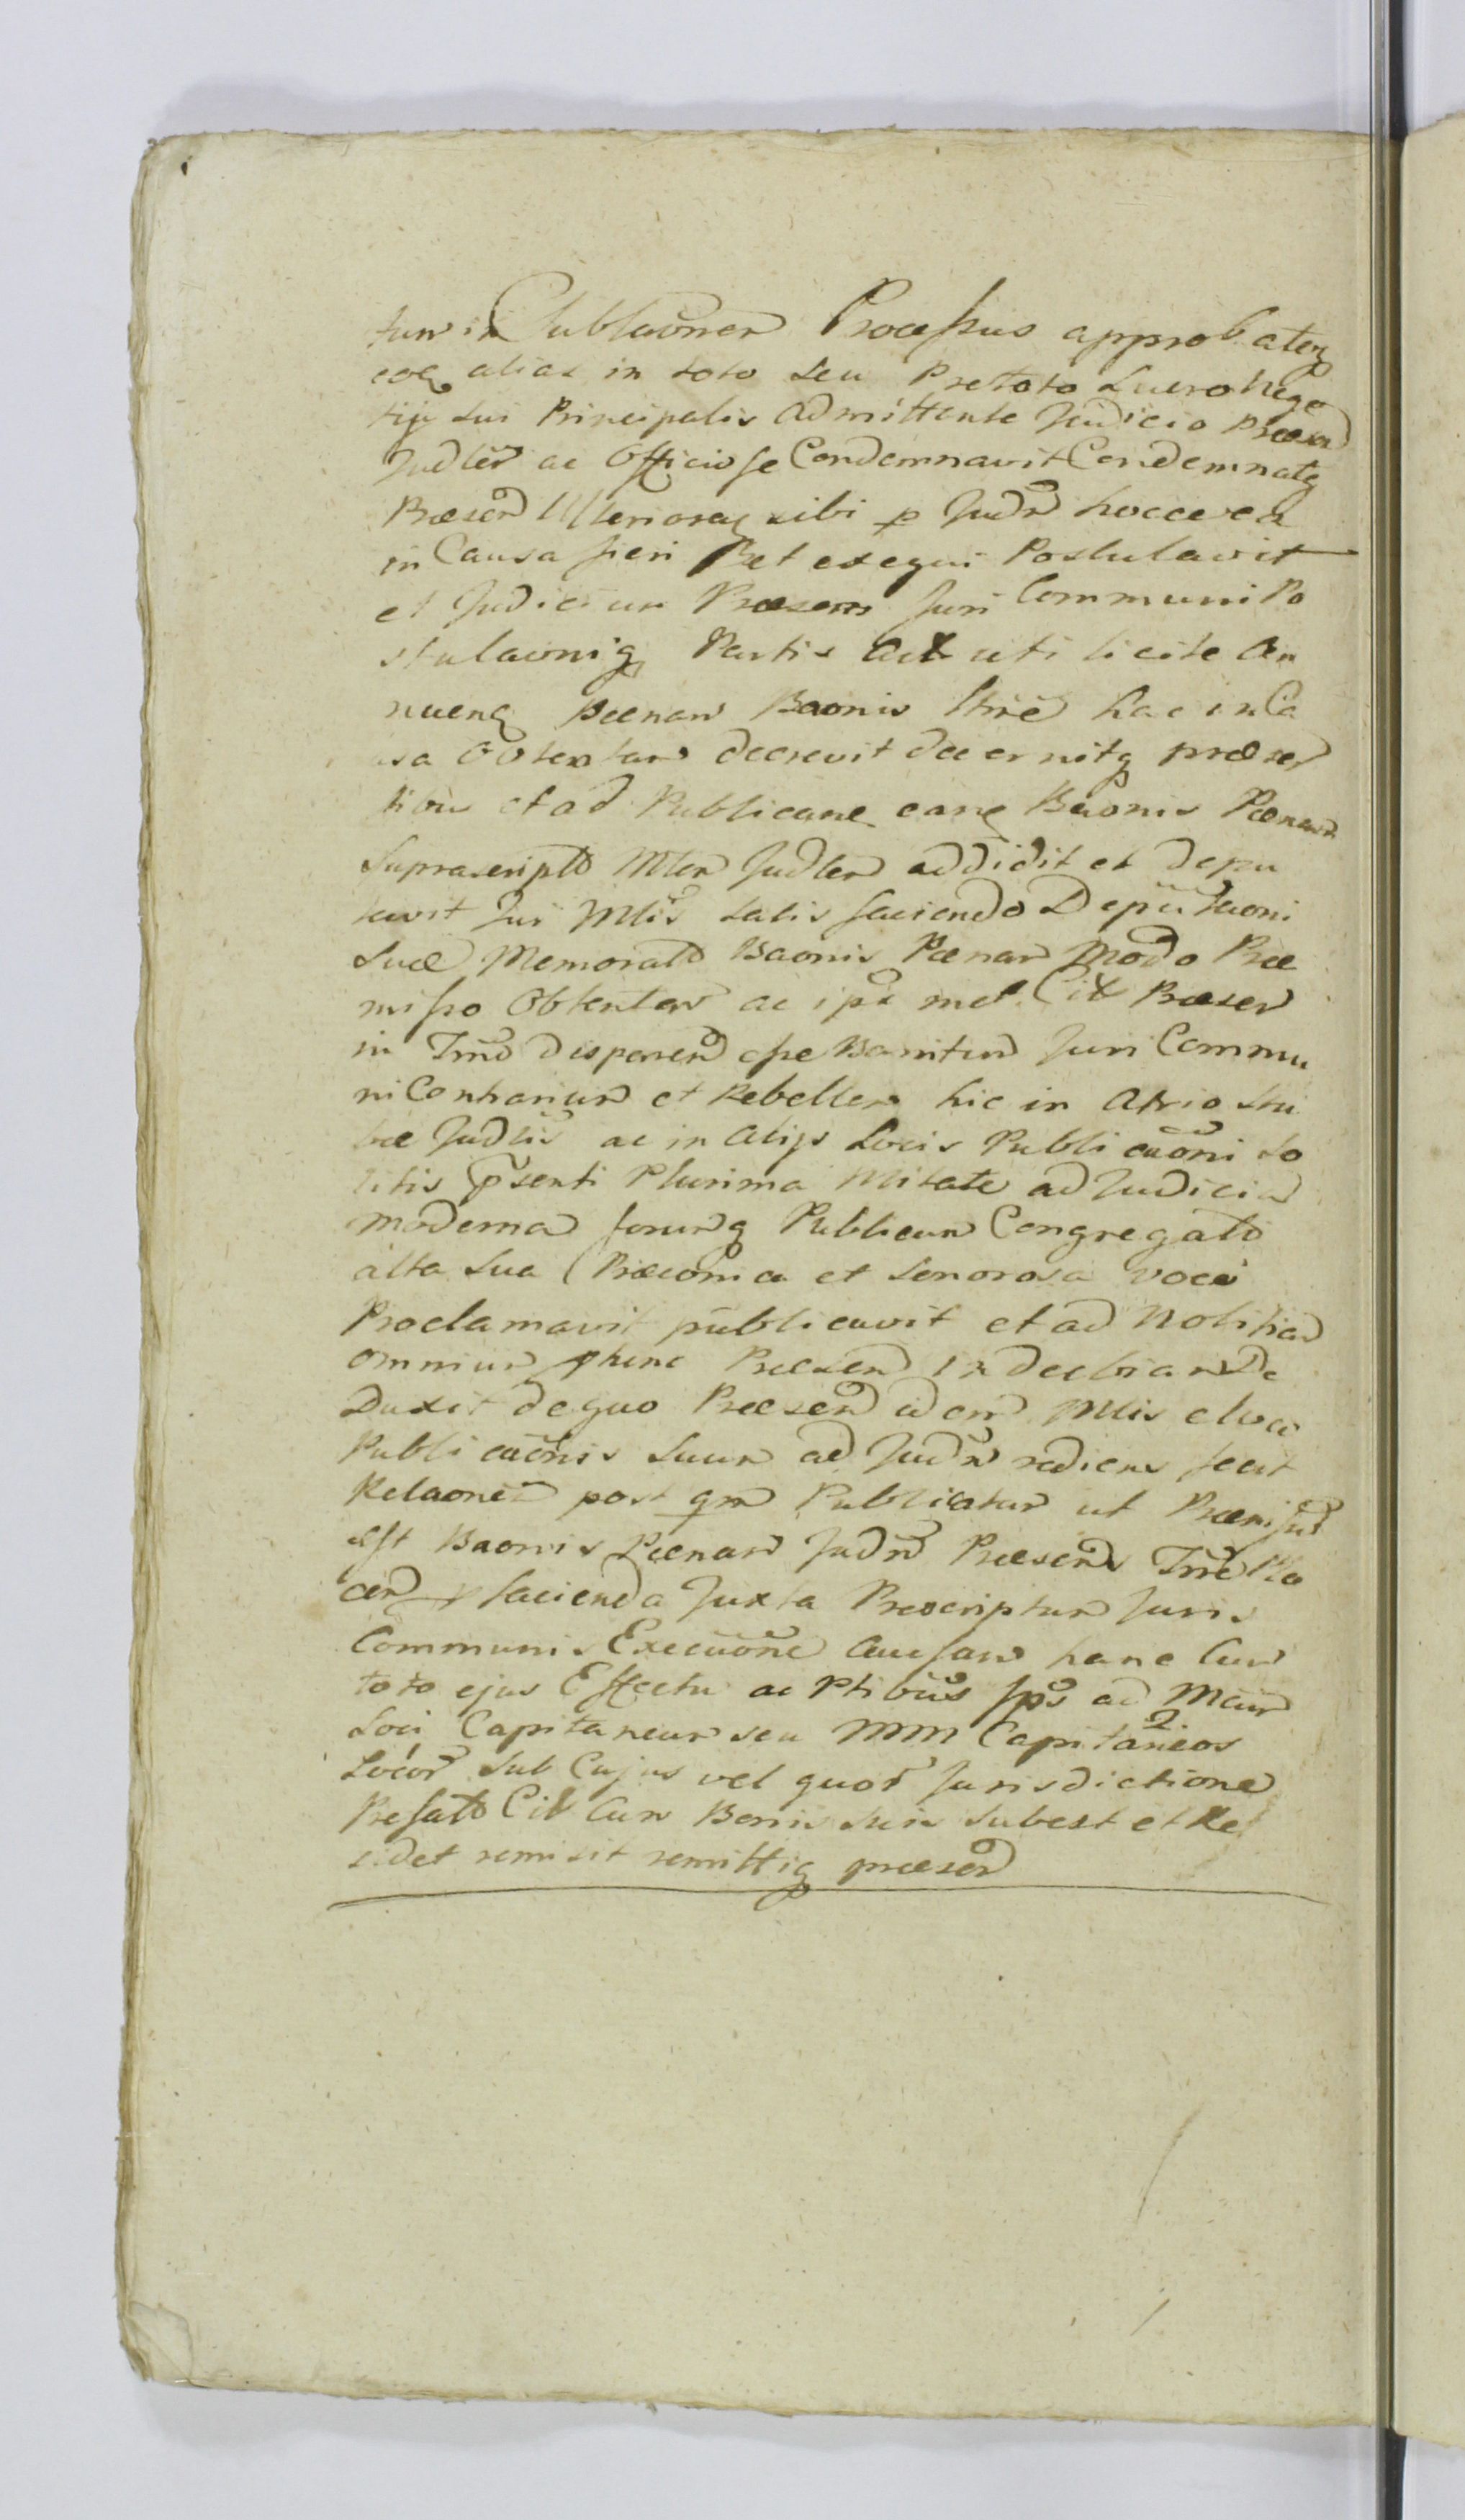 tum in Publicaõnem Processus approbatq
eoq alias in toto seu pretoto Lucro Nego
tij sui Principalis Admittente Judicio Præsen
Judler ac Officiose Condemnavit Condemnatq
Præsen Ulterioraq sibi p Judm hocce ea
in Causa fieri et exequi Postulavit
et Judicium Præsens Juri Communi Po
stulaoniq Partis Act uti licite An
nuenq Pænam Baonis hac in Ca
usa Obtentam decrevit decernitq præsen
tibus et ad Publicane eanq Baonis Pænam
Suprascriptõ Mlem Judlem addidit et depu
tavit Qui Mlis satis faciendo Deputaoni
Suæ Memoratõ Baonis Pænam Modo Præ
misso Obtentam ac ipm Cit Præsen
in Tmo disparen esse Banitum Juri Commu
ni Contrarium et Rebellem hic in Atrio Stu
bæ Judlis ac in Alijs Locis Publicaõni so
litis Psenti Plurima Mltate ad Judicia
moderna forumq Publicum Congregatõ
alta sua Præconica et Sonorosa voce
Proclamavit publicavit et ad Notitiam
omnium phinc Præsen Indeebiande
Duxit de quo Præsen idem Mlis
Publicaõnis Suum ad Judm rediens fecit
Relaonem post qm Publicatam ut Præmissũ
est Baonis Pænam Judm Præsens Trre
cen p facienda Juxta Prescriptum Juris
Communis Execuõne Causam hanc Cum
toto ejus Effectu ac Ptibus Ips ad Mcum
Loci Capitaneum seu MM Capitaneos
Locor sub Cujus vel quor Jurisdictione
Prefatõ Cit Cum Bonis Suis Subest et Re
sidet remisit remittiq præsen